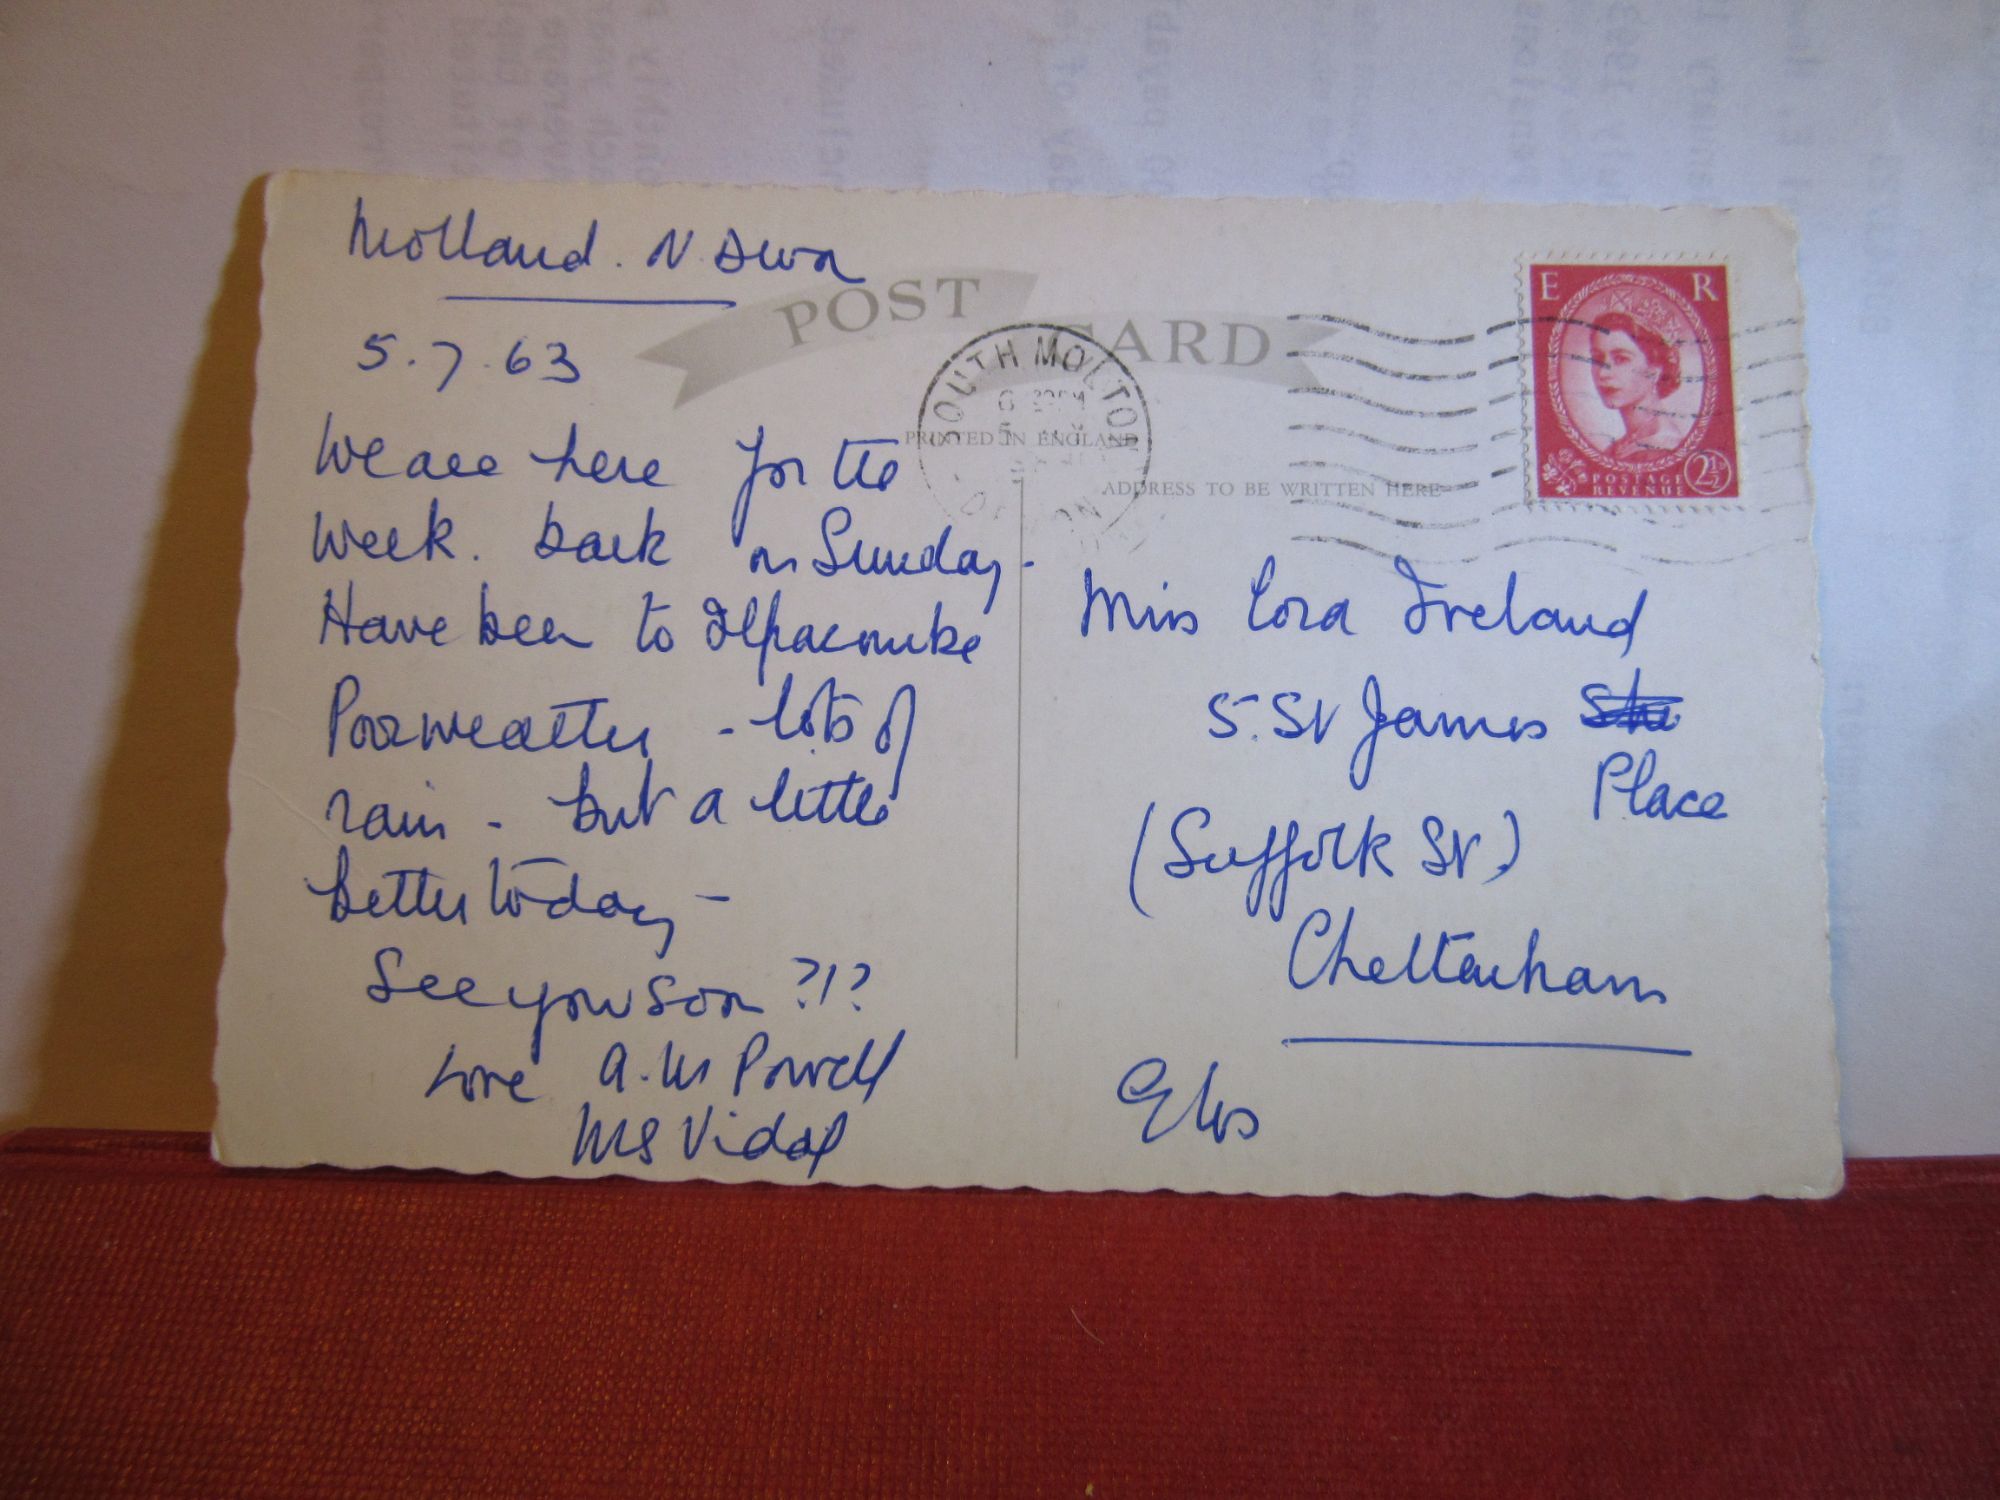 Molland. N. Devon
5.7.63
We are here for the
week. back on Sunday.
Have been to Ilfracombe
Poor weather - lots of
rain - but a little
better today -
See you soon ?!?
Love A. M Powell
MS Vidal
POST CARD
SOUTH MOLTON
DEVON
PRINTED IN ENGLAND
ADDRESS TO BE WRITTEN HERE
E R
POSTAGE
REVENUE
2½
Miss Cora Ireland
5. St James
Place
(Suffolk St.)
Cheltenham
Glos